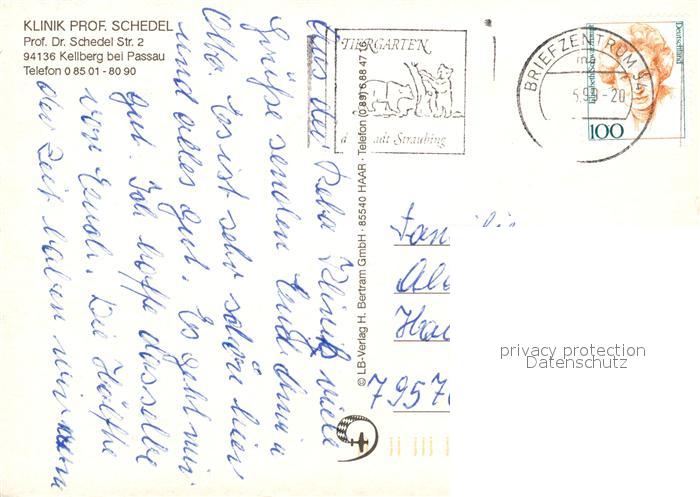 KLINIK PROF. SCHEDEL
Prof. Dr. Schedel Str. 2
94136 Kellberg bei Passau
Telefon 0 85 01 - 80 90
Aus der Reha Klinik viele
Grüße senden Euch Anna
Otto. Es ist sehr schön hier
und alles gut. Es geht mir
gut. Ich hoffe dasselbe
von Euch. Die Hälfte
der Zeit haben wir
© LB-Verlag H. Bertram GmbH · 85540 HAAR · Telefon (0 89) 6 88 47 76
TIERGARTEN
d adt Straubing
BRIEFZENTRUM 94
5.99-20
Deutschland
100
Fam
7957
privacy protection
Datenschutz